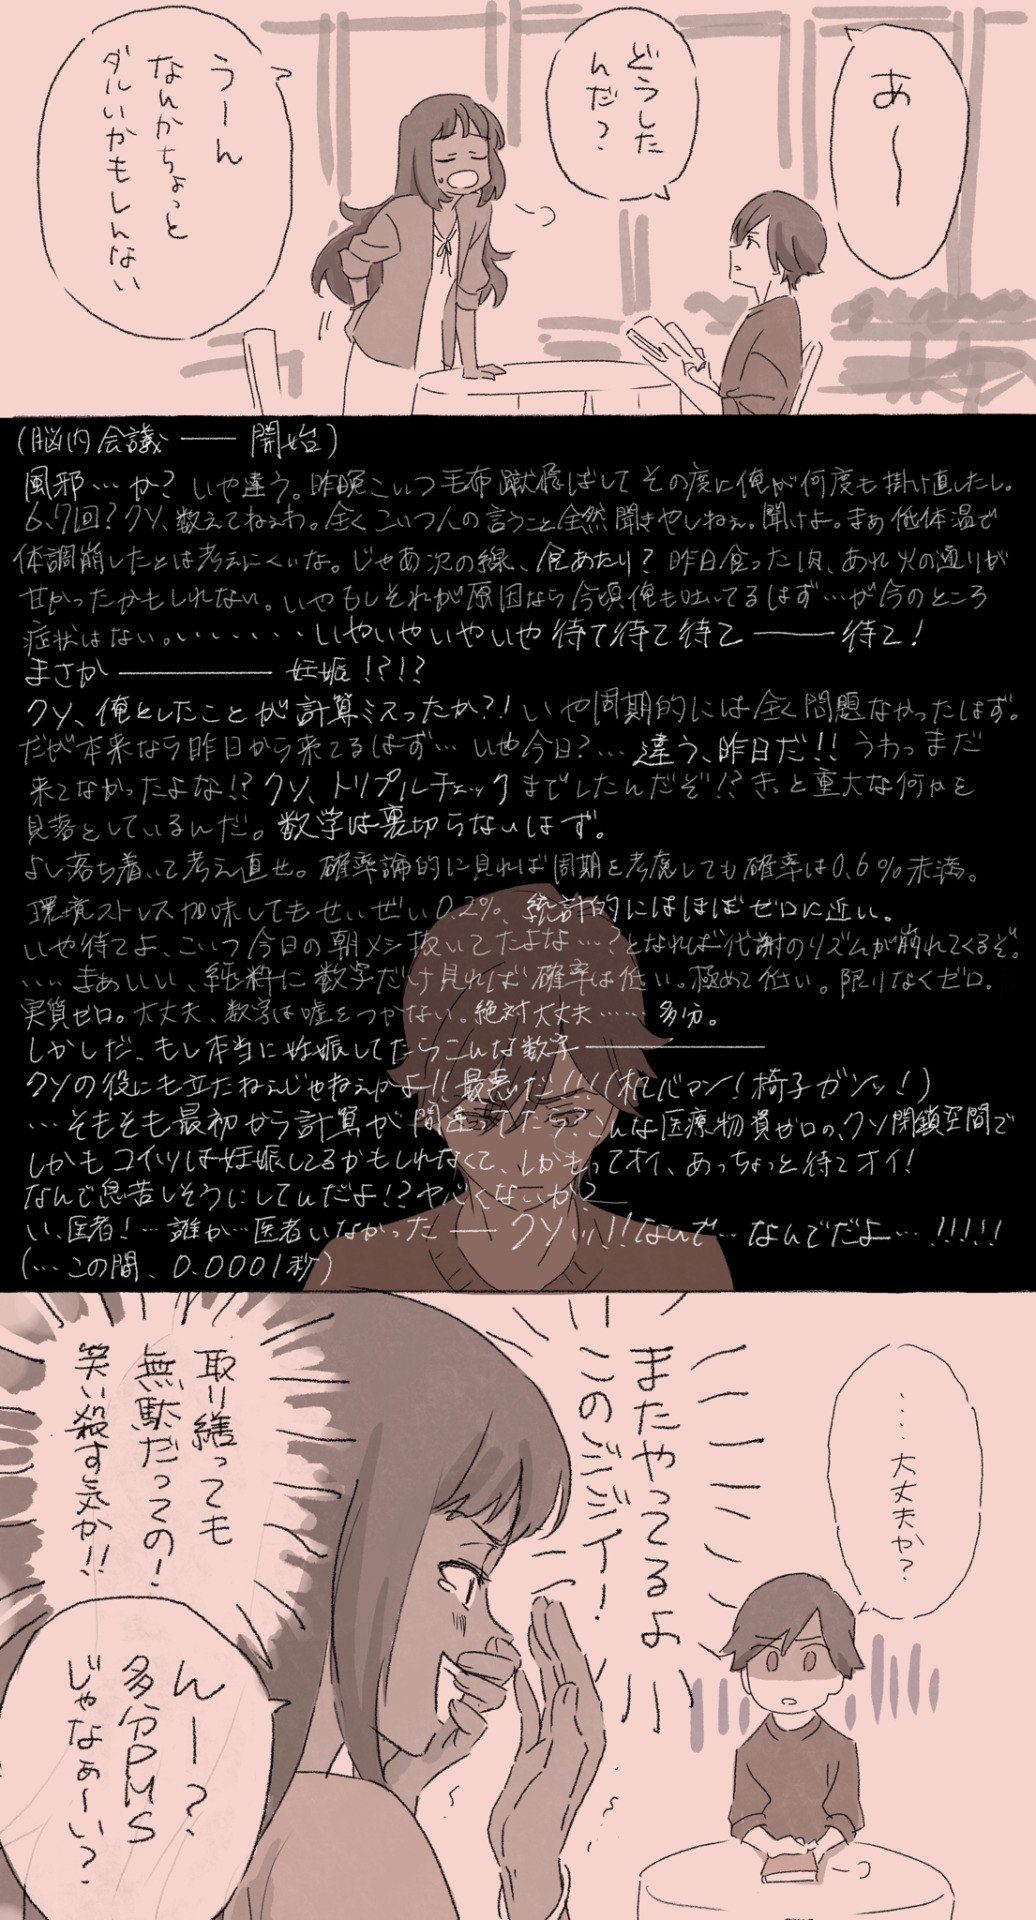 あ〜〜
どうした
んだ?
うーん
なんかちょっと
ダルいかもしんない
(脳内会議―― 開始)
風邪…か?いや違う。昨晩こいつ毛布蹴飛ばしてその度に俺が何度も掛け直したし。
6,7回?クソ、数えてねぇわ。全くこいつ人の言うこと全然聞きやしねぇ。聞けよ。まぁ低体温で
体調崩したとは考えにくいな。じゃあ次の線、食あたり?昨日食った肉、あれ火の通りが
甘かったかもしれない。いやもしそれが原因なら今頃俺も吐いてるはず…が今のところ
症状はない。・・・・・・・いやいやいやいや待て待て待て―――待て!
まさか――――――妊娠!?!?
クソ、俺としたことが計算ミスったか?!いや周期的には全く問題なかったはず。
だが本来なら昨日から来てるはず…いや今日?…違う、昨日だ!!うわっまだ
来てなかったよな!?クソ、トリプルチェックまでしたんだぞ!?きっと重大な何かを
見落としているんだ。数学は裏切らないはず。
よし落ち着いて考え直せ。確率論的に見れば周期を考慮しても確率は0.6%未満。
環境ストレス加味してもせいぜい0.2%、統計的にはほぼゼロに近い。
いや待てよ、こいつ今日の朝メシ抜いてたよな…?となれば代謝のリズムが崩れてくるぞ。
….まぁいい、純粋に数字だけ見れば確率は低い。極めて低い。限りなくゼロ。
実質ゼロ。大丈夫、数字は嘘をつかない。絶対大丈夫……多分。
しかしだ、もし本当に妊娠してたらこんな数字――――――
クソの役にも立たねぇじゃねぇかよ!!最悪だ!!!(机バァン!椅子ガンッ!)
…そもそも最初から計算が間違ってたら?こんな医療物資ゼロの、クソ閉鎖空間で
しかもコイツは妊娠してるかもしれなくて、しかもってオイ、あっちょっと待てオイ!
なんで息苦しそうにしてんだよ!?ヤバくないか?
い、医者!…誰か…医者いなかった――クソッ!!なんで…なんでだよ…!!!!!
(…この間、0.0001秒)
……大丈夫か?
またやってるよ
このジジイ!
取り繕っても
無駄だっての!
笑い殺す気か!!
んー?
多分PMS
じゃなぁ〜い?